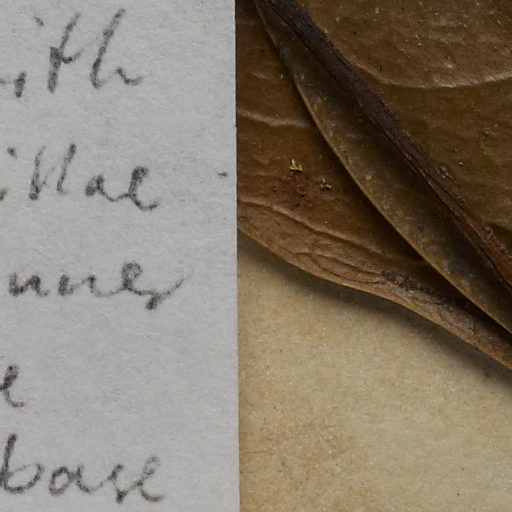 ith
illae
nner
e
base